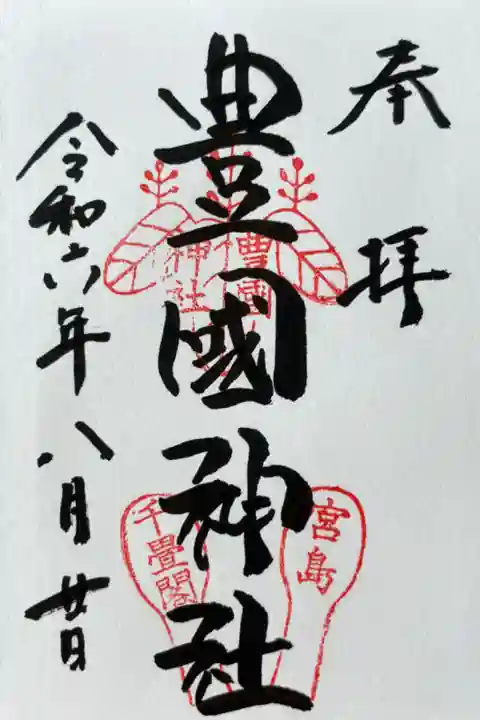 奉拝
豊國神社
豊國
神社
宮島
千畳閣
令和六年八月廿日